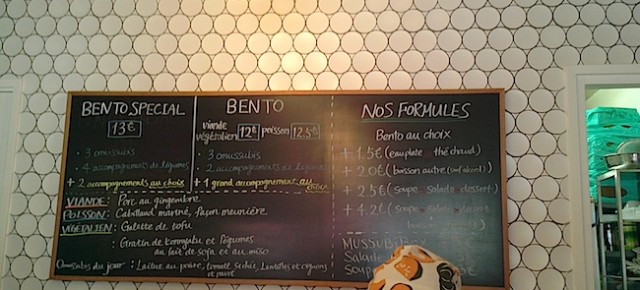 BENTO SPECIAL
13€
• 3 omusubis
• 4 accompagnements de légumes
+ 2 accompagnements au choix
BENTO
viande
végétalien 12€ poisson 12.5€
• 3 omusubis
• 2 accompagnements de légumes
+ 1 grand accompagnement au choix
VIANDE : Porc au gingembre
POISSON : Cabillaud mariné, façon meunière
VÉGÉTALIEN : Galette de tofu
: Gratin de et légumes
au lait de soja et au miso
Omusubis du jour : poivre, tomate séchée, Lentilles et oignons
NOS FORMULES
Bento au choix
+ 1.5€ (eau plate thé chaud)
+ 2.0€ (boisson autre (sauf alcool))
+ 2.5€ (soupe salade dessert)
+ 4.2€ (soupe salade dessert
MUSUBI
Salade
Soupe